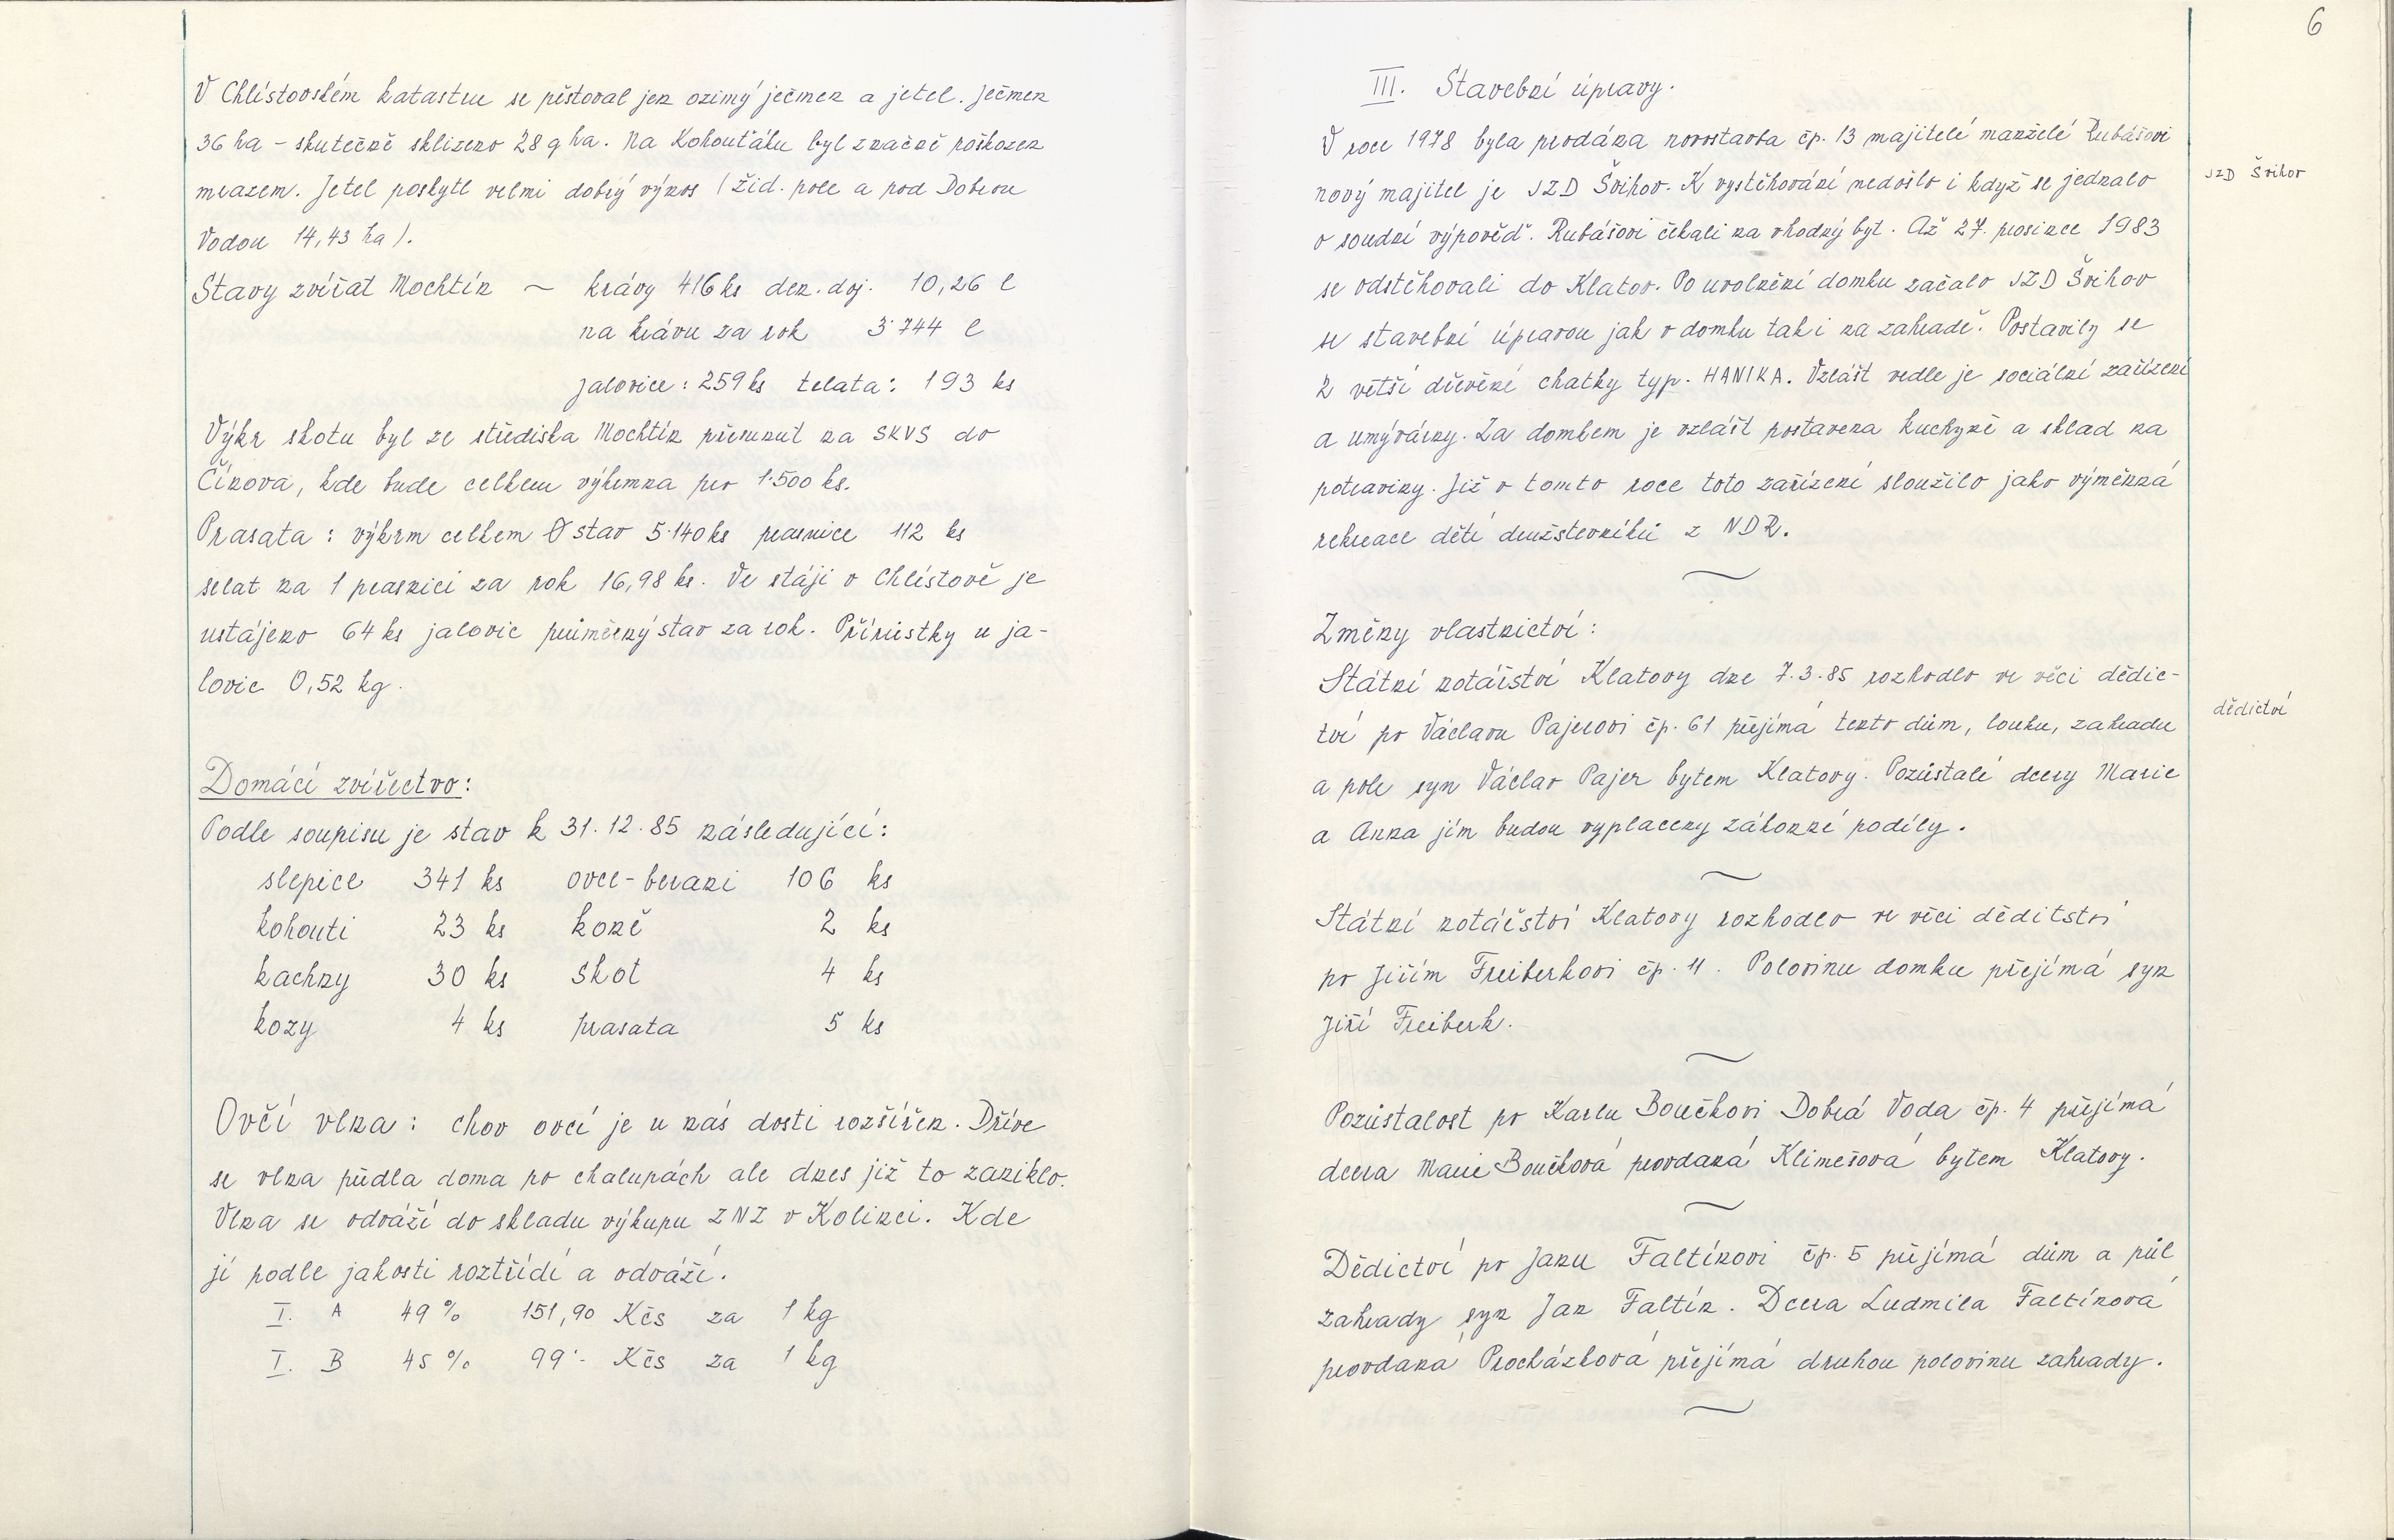 V Chlístovském katastru se pěstoval jen ozimý ječmen a jetel. Ječmen
36 ha – skutečně sklizeno 28 q ha. Na Kohouťáku byl značně poškozen
mrazem. Jetel poskytl velmi dobrý výnos (Žid. pole a pod Dobrou
Vodou 14,43 ha).
Stavy zvířat Mochtín – krávy 416 ks den. doj. 10,26 l
na krávu za rok 3.744 l
jalovice: 259 ks telata: 193 ks
Výkr skotu byl ze střediska Mochtín přesunut na SKVS do
Čínova, kde bude celkem výkrmna pro 1.500 ks.
Prasata: výkrm celkem Ø stav 5.140 ks prasnice 112 ks
selat na 1 prasnici za rok 16,98 ks. Ve stáji v Chlístově je
ustájeno 64 ks jalovic průměrný stav za rok. Přírůstky u ja-
lovic 0,52 kg.
Domácí zvířectvo:
Podle soupisu je stav k 31.12.85 následující:
slepice 341 ks ovce-berani 106 ks
kohouti 23 ks koně 2 ks
kachny 30 ks skot 4 ks
kozy 4 ks prasata 5 ks
Ovčí vlna: chov ovcí je u nás dosti rozšířen. Dříve
se vlna předla doma po chalupách ale dnes již to zaniklo.
Vlna se odváží do skladu výkupu ZNZ v Kolinci. Kde
jí podle jakosti roztřídí a odváží.
I. A 49 % 151,90 Kčs za 1 kg
I. B 45 % 99.- Kčs za 1 kg
6
III. Stavební úpravy.
V roce 1978 byla prodána novostavba čp. 13 majitelé manželé Rubášovi
nový majitel je JZD Švihov. K vystěhování nedošlo i když se jednalo
JZD Švihov
o soudní výpověď. Rubášovi čekali na vhodný byt. Až 27. prosince 1983
se odstěhovali do Klatov. Po uvolnění domku začalo JZD Švihov
se stavební úpravou jak v domku tak i na zahradě. Postavily se
2 větší dřevěné chatky typ. HANIKA. Vzlášt vedle je sociální zařízení
a umývárny. Za domkem je vzlášt postavena kuchyně a sklad na
potraviny. Již v tomto roce toto zařízení sloužilo jako výměnná
rekreace dětí družstevníků z NDR.
Změny vlastnictví:
Státní notářství Klatovy dne 7.3.85 rozhodlo ve věci dědic-
tví po Václavu Pajerovi čp. 61 přejímá tento dům, louku, zahradu
dědictví
a pole syn Václav Pajer bytem Klatovy. Pozůstalé dcery Marie
a Anna jím budou vyplaceny zákonné podíly.
Státní notářství Klatovy rozhodlo ve věci děditství
po Jiřím Freiberkovi čp. 11. Polovinu domku přejímá syn
Jiří Freiberk.
Pozůstalost po Karlu Boučkovi Dobrá Voda čp. 4 přejímá
dcera Marie Boučková provdaná Klimešová bytem Klatovy.
Dědictví po Janu Faltínovi čp. 5 přejímá dům a půl
zahrady syn Jan Faltín. Dcera Ludmila Faltínová
provdaná Procházková přejímá druhou polovinu zahrady.